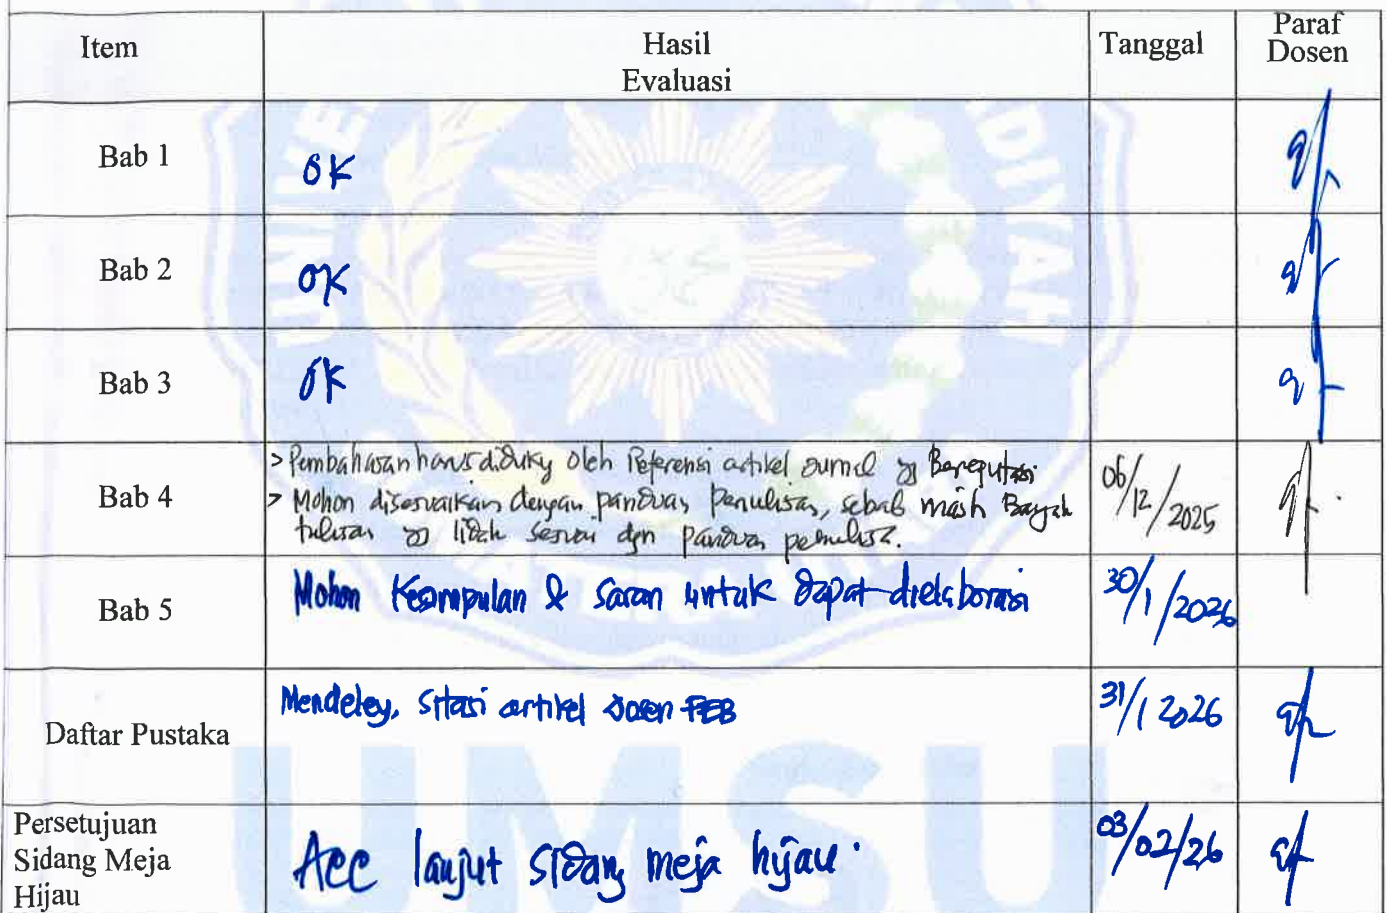 Item Hasil Evaluasi Tanggal Paraf Dosen
Bab 1 OK
Bab 2 OK
Bab 3 OK
Bab 4
> Pembahasan harus diduky oleh Referensi artikel Jurnal yg Bereputasi 06/12/2025
> Mohon disesuaikan dengan panduan penulisan, sebab masih Banyak
tulisan yg tidak sesuai dgn panduan penulisa.
Bab 5 Mohon Kesimpulan & saran untuk dapat dielaborasi 30/1/2026
Daftar Pustaka Mendeley, Sitasi artikel Dosen FEB 31/1 2026
Persetujuan
Sidang Meja
Hijau
Acc lanjut sidang meja hijau. 03/02/26
UMSU